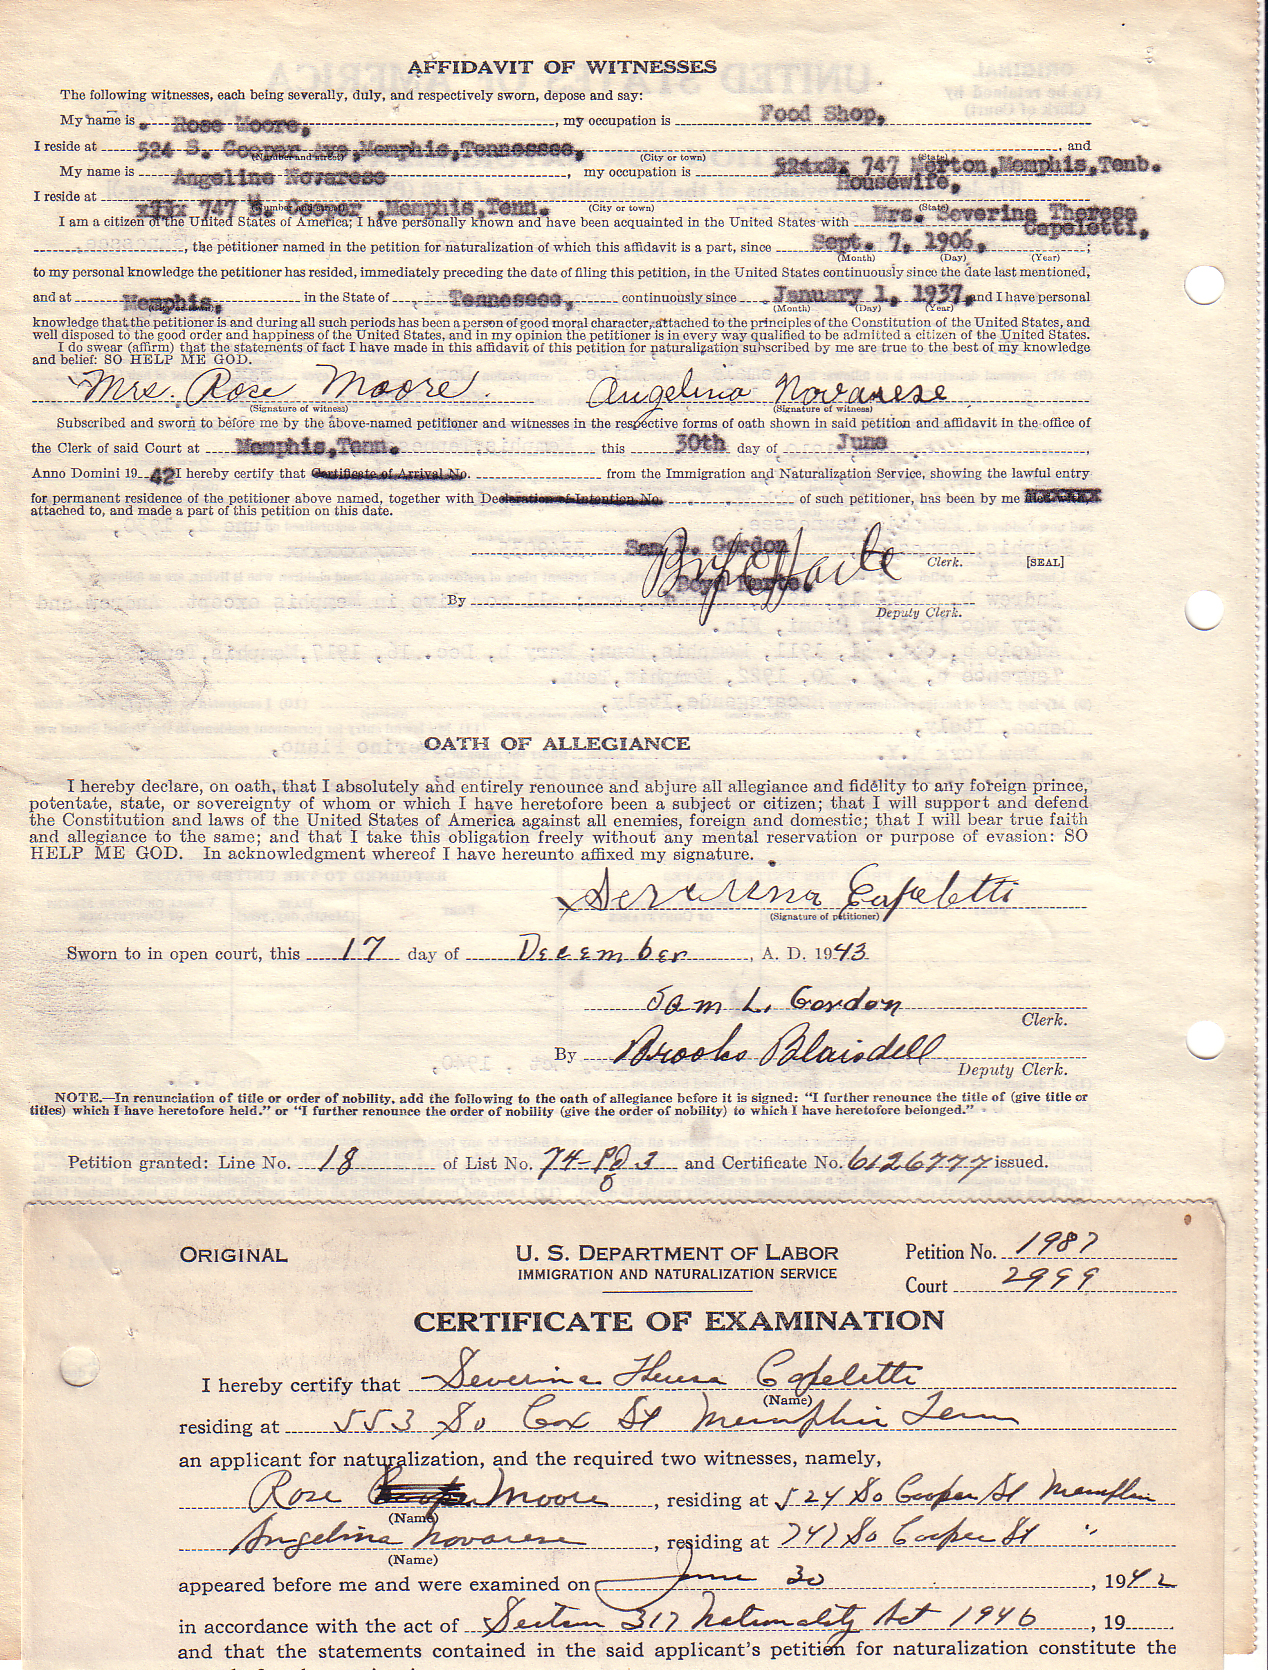 AFFIDAVIT OF WITNESSES
The following witnesses, each being severally, duly, and respectively sworn, depose and say:
My name is . Rose Moore, , my occupation is Food Shop,
I reside at 524 S. Cooper Ave,Memphis,Tennessee, , and
(Number and street) (City or town) (State)
My name is Angeline Novarese , my occupation is 747 Merton,Memphis,Tenb.
Housewife,
I reside at 747 S. Cooper ,Memphis,Tenn.
(Number and street) (City or town) (State)
I am a citizen of the United States of America; I have personally known and have been acquainted in the United States with Mrs. Soverina Therese
Capeletti,
, the petitioner named in the petition for naturalization of which this affidavit is a part, since Sept. 7, 1906, ;
(Month) (Day) (Year)
to my personal knowledge the petitioner has resided, immediately preceding the date of filing this petition, in the United States continuously since the date last mentioned,
and at Memphis, in the State of Tennessee, continuously since January 1, 1937, and I have personal
(City or town) (Month) (Day) (Year)
knowledge that the petitioner is and during all such periods has been a person of good moral character, attached to the principles of the Constitution of the United States, and
well disposed to the good order and happiness of the United States, and in my opinion the petitioner is in every way qualified to be admitted a citizen of the United States.
I do swear (affirm) that the statements of fact I have made in this affidavit of this petition for naturalization subscribed by me are true to the best of my knowledge
and belief: SO HELP ME GOD.
Mrs. Rose Moore. Angelina Novarese
(Signature of witness) (Signature of witness)
Subscribed and sworn to before me by the above-named petitioner and witnesses in the respective forms of oath shown in said petition and affidavit in the office of
the Clerk of said Court at Memphis,Tenn. this 30th day of June ,
Anno Domini 19 42 I hereby certify that Certificate of Arrival No. from the Immigration and Naturalization Service, showing the lawful entry
for permanent residence of the petitioner above named, together with Declaration of Intention No. of such petitioner, has been by me
attached to, and made a part of this petition on this date.
Sam L. Gordon
Clerk. [SEAL]
By
Deputy Clerk.
OATH OF ALLEGIANCE
I hereby declare, on oath, that I absolutely and entirely renounce and abjure all allegiance and fidelity to any foreign prince,
potentate, state, or sovereignty of whom or which I have heretofore been a subject or citizen; that I will support and defend
the Constitution and laws of the United States of America against all enemies, foreign and domestic; that I will bear true faith
and allegiance to the same; and that I take this obligation freely without any mental reservation or purpose of evasion: SO
HELP ME GOD. In acknowledgment whereof I have hereunto affixed my signature.
Severina Capeletti
(Signature of petitioner)
Sworn to in open court, this 17 day of December , A. D. 1943
Sam L. Gordon
Clerk.
By Brooks Blaisdell
Deputy Clerk.
NOTE.—In renunciation of title or order of nobility, add the following to the oath of allegiance before it is signed: "I further renounce the title of (give title or
titles) which I have heretofore held." or "I further renounce the order of nobility (give the order of nobility) to which I have heretofore belonged."
Petition granted: Line No. 18 of List No. 74-Pg 3 and Certificate No. 6126777 issued.
ORIGINAL U. S. DEPARTMENT OF LABOR Petition No. 1987
IMMIGRATION AND NATURALIZATION SERVICE Court 2999
CERTIFICATE OF EXAMINATION
I hereby certify that Severina Theresa Capeletti
(Name)
residing at 553 So Cox St Memphis Tenn
an applicant for naturalization, and the required two witnesses, namely,
Rose Moore , residing at 524 So Cooper St Memphis
(Name)
Angelina Novarese , residing at 747 So Cooper St "
(Name)
appeared before me and were examined on June 30 , 1942
in accordance with the act of Section 317 Nationality Act 1940 , 19
and that the statements contained in the said applicant's petition for naturalization constitute the